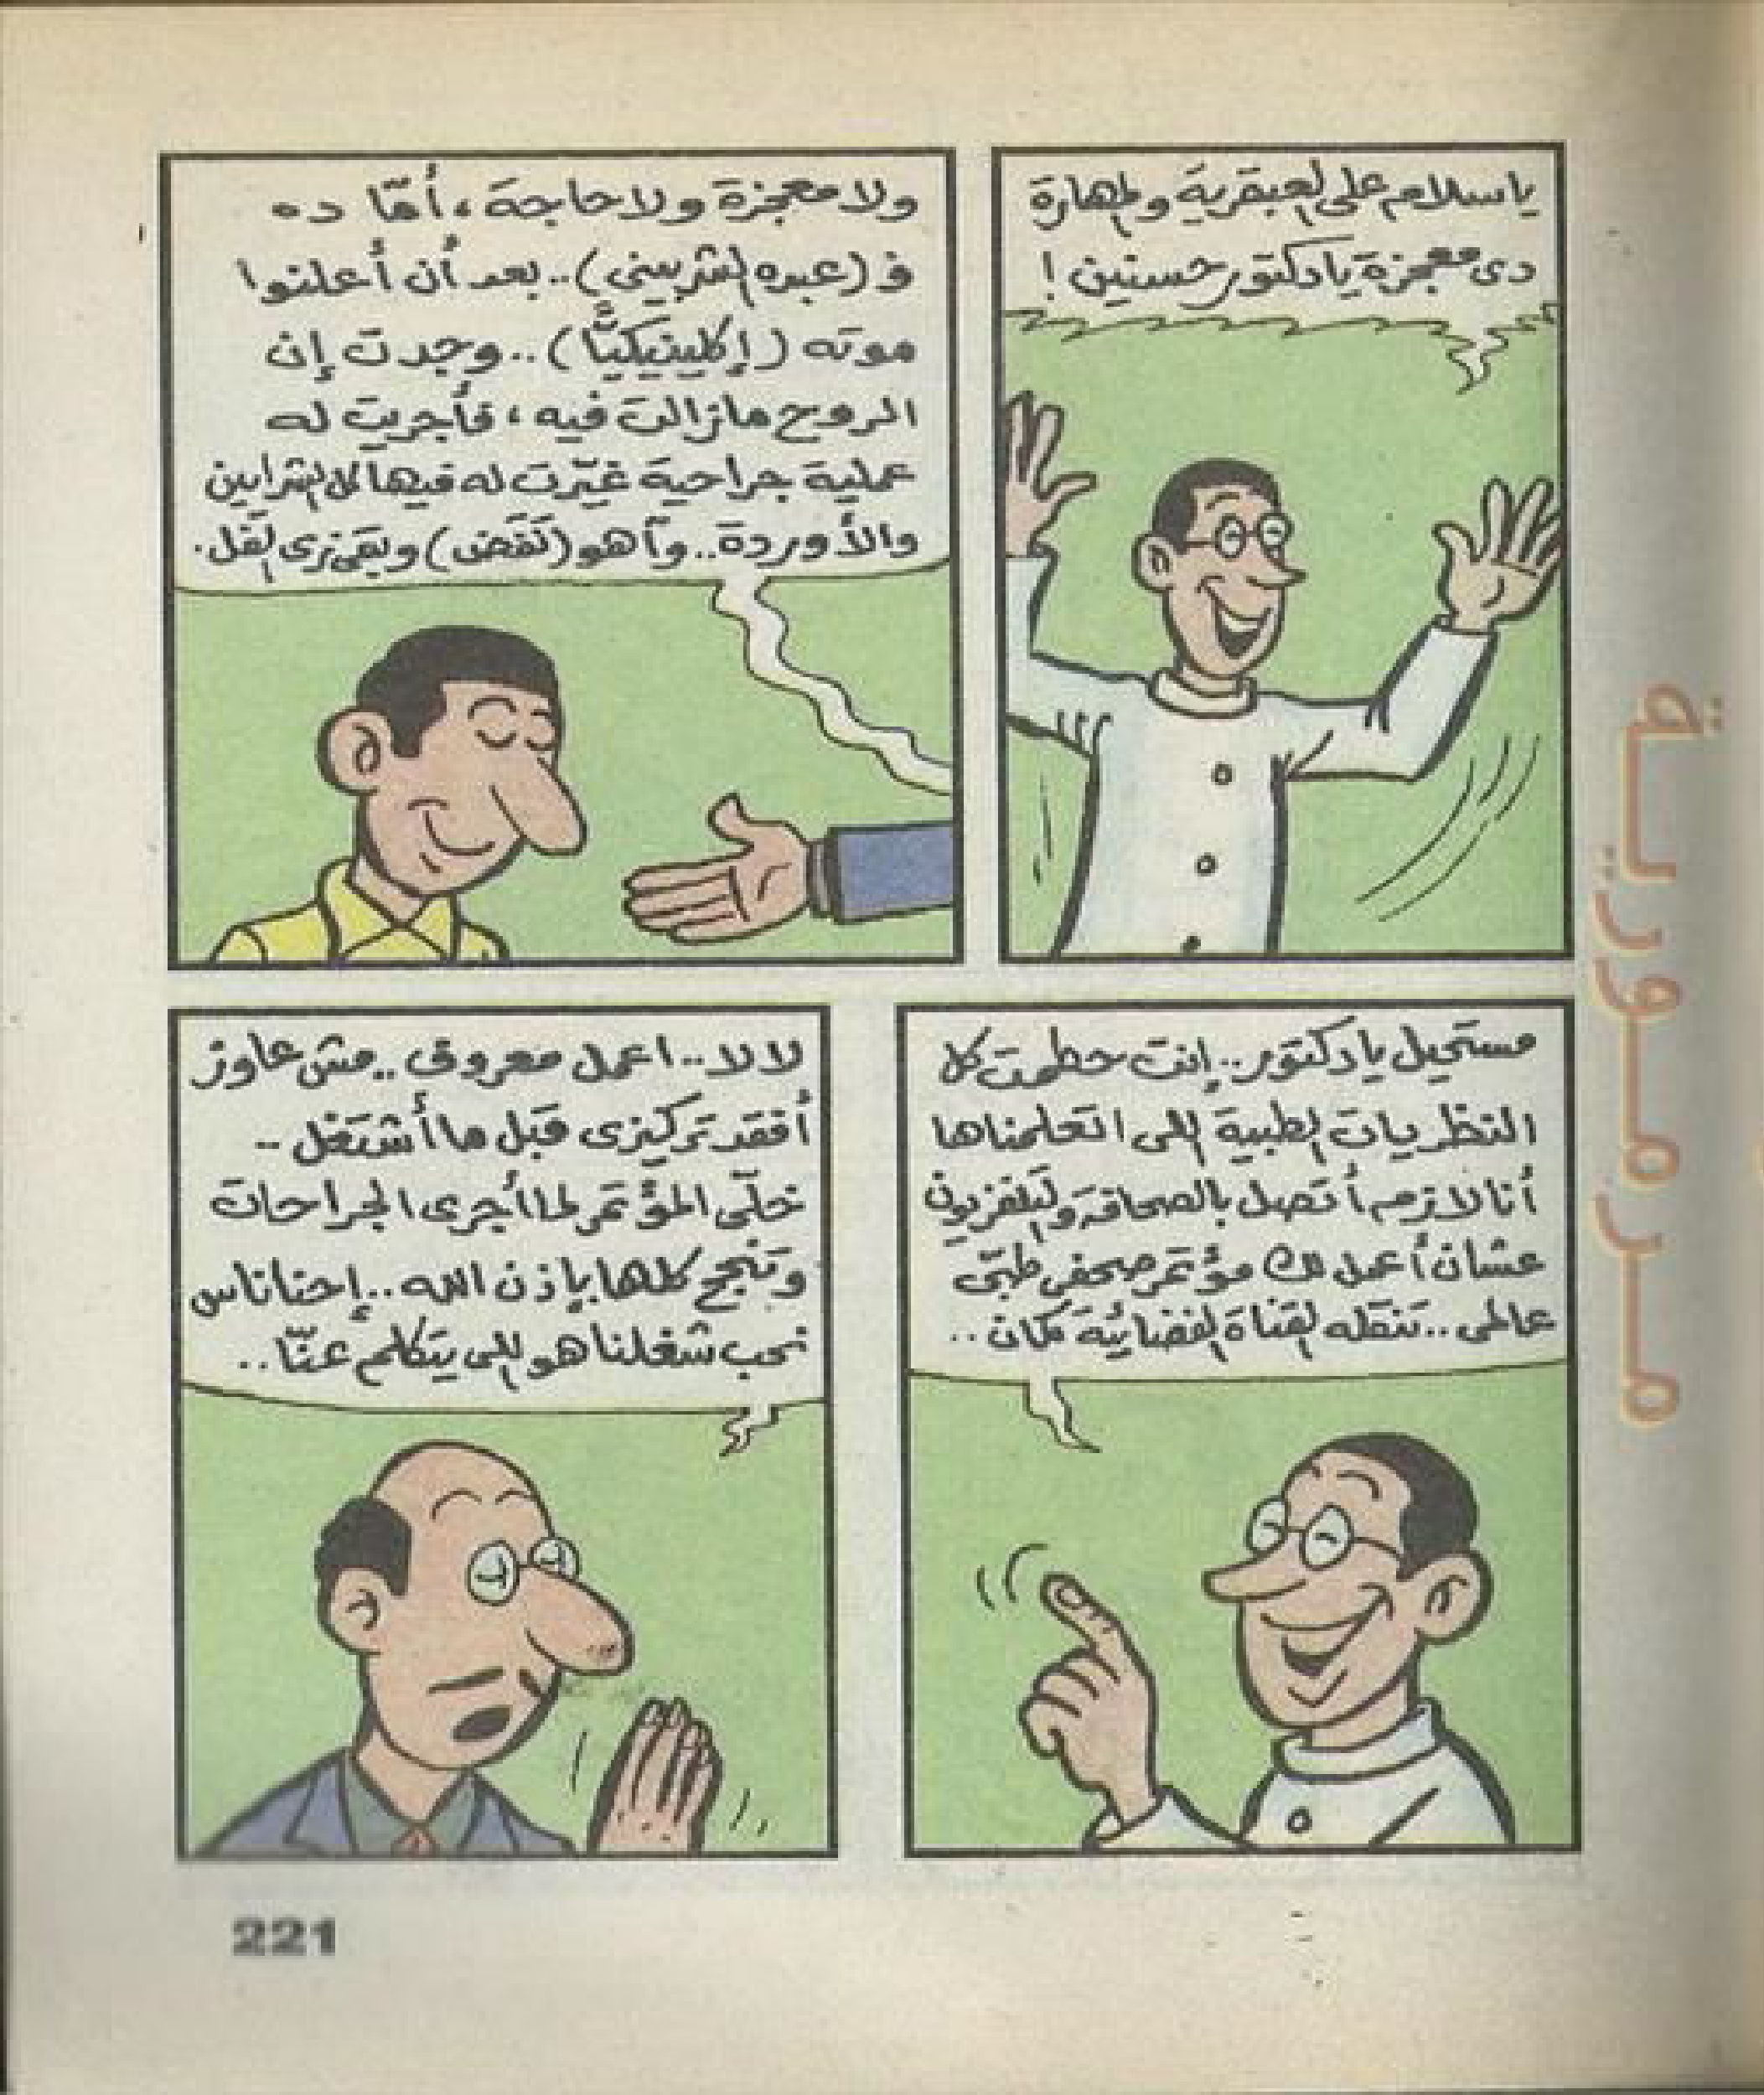 ياسلام على العبقرية والمهارة
دى معجزة يا دكتور حسنين !
ولا معجزة ولا حاجة ، أمّا ده
ف (عبده الشربينى) .. بعد أن أعلنوا
موته (إكلينيكيًّا) .. وجدت إن
الروح مازالت فيه ، فأجريت له
عملية جراحية غيّرت له فيها كل الشرايين
والأوردة .. وآهو (نَفَض) وبقى زى الفل .
مستحيل يا دكتور .. إنت حطمت كل
النظريات الطبية اللى اتعلمناها
أنا لازم أتصل بالصحافة والتليفزيون
عشان أعمل لك مؤتمر صحفى طبّى
عالمى .. تنقله القناة الفضائية كمان ..
لا لا .. اعمل معروف .. مش عاوز
أفقد تركيزى قبل ما أشتغل -
خلّى المؤتمر لما أجرى الجراحات
وتنجح كلها بإذن الله .. إحنا ناس
نحب شغلنا هو اللى يتكلم عنّا ..
مرمورية
221